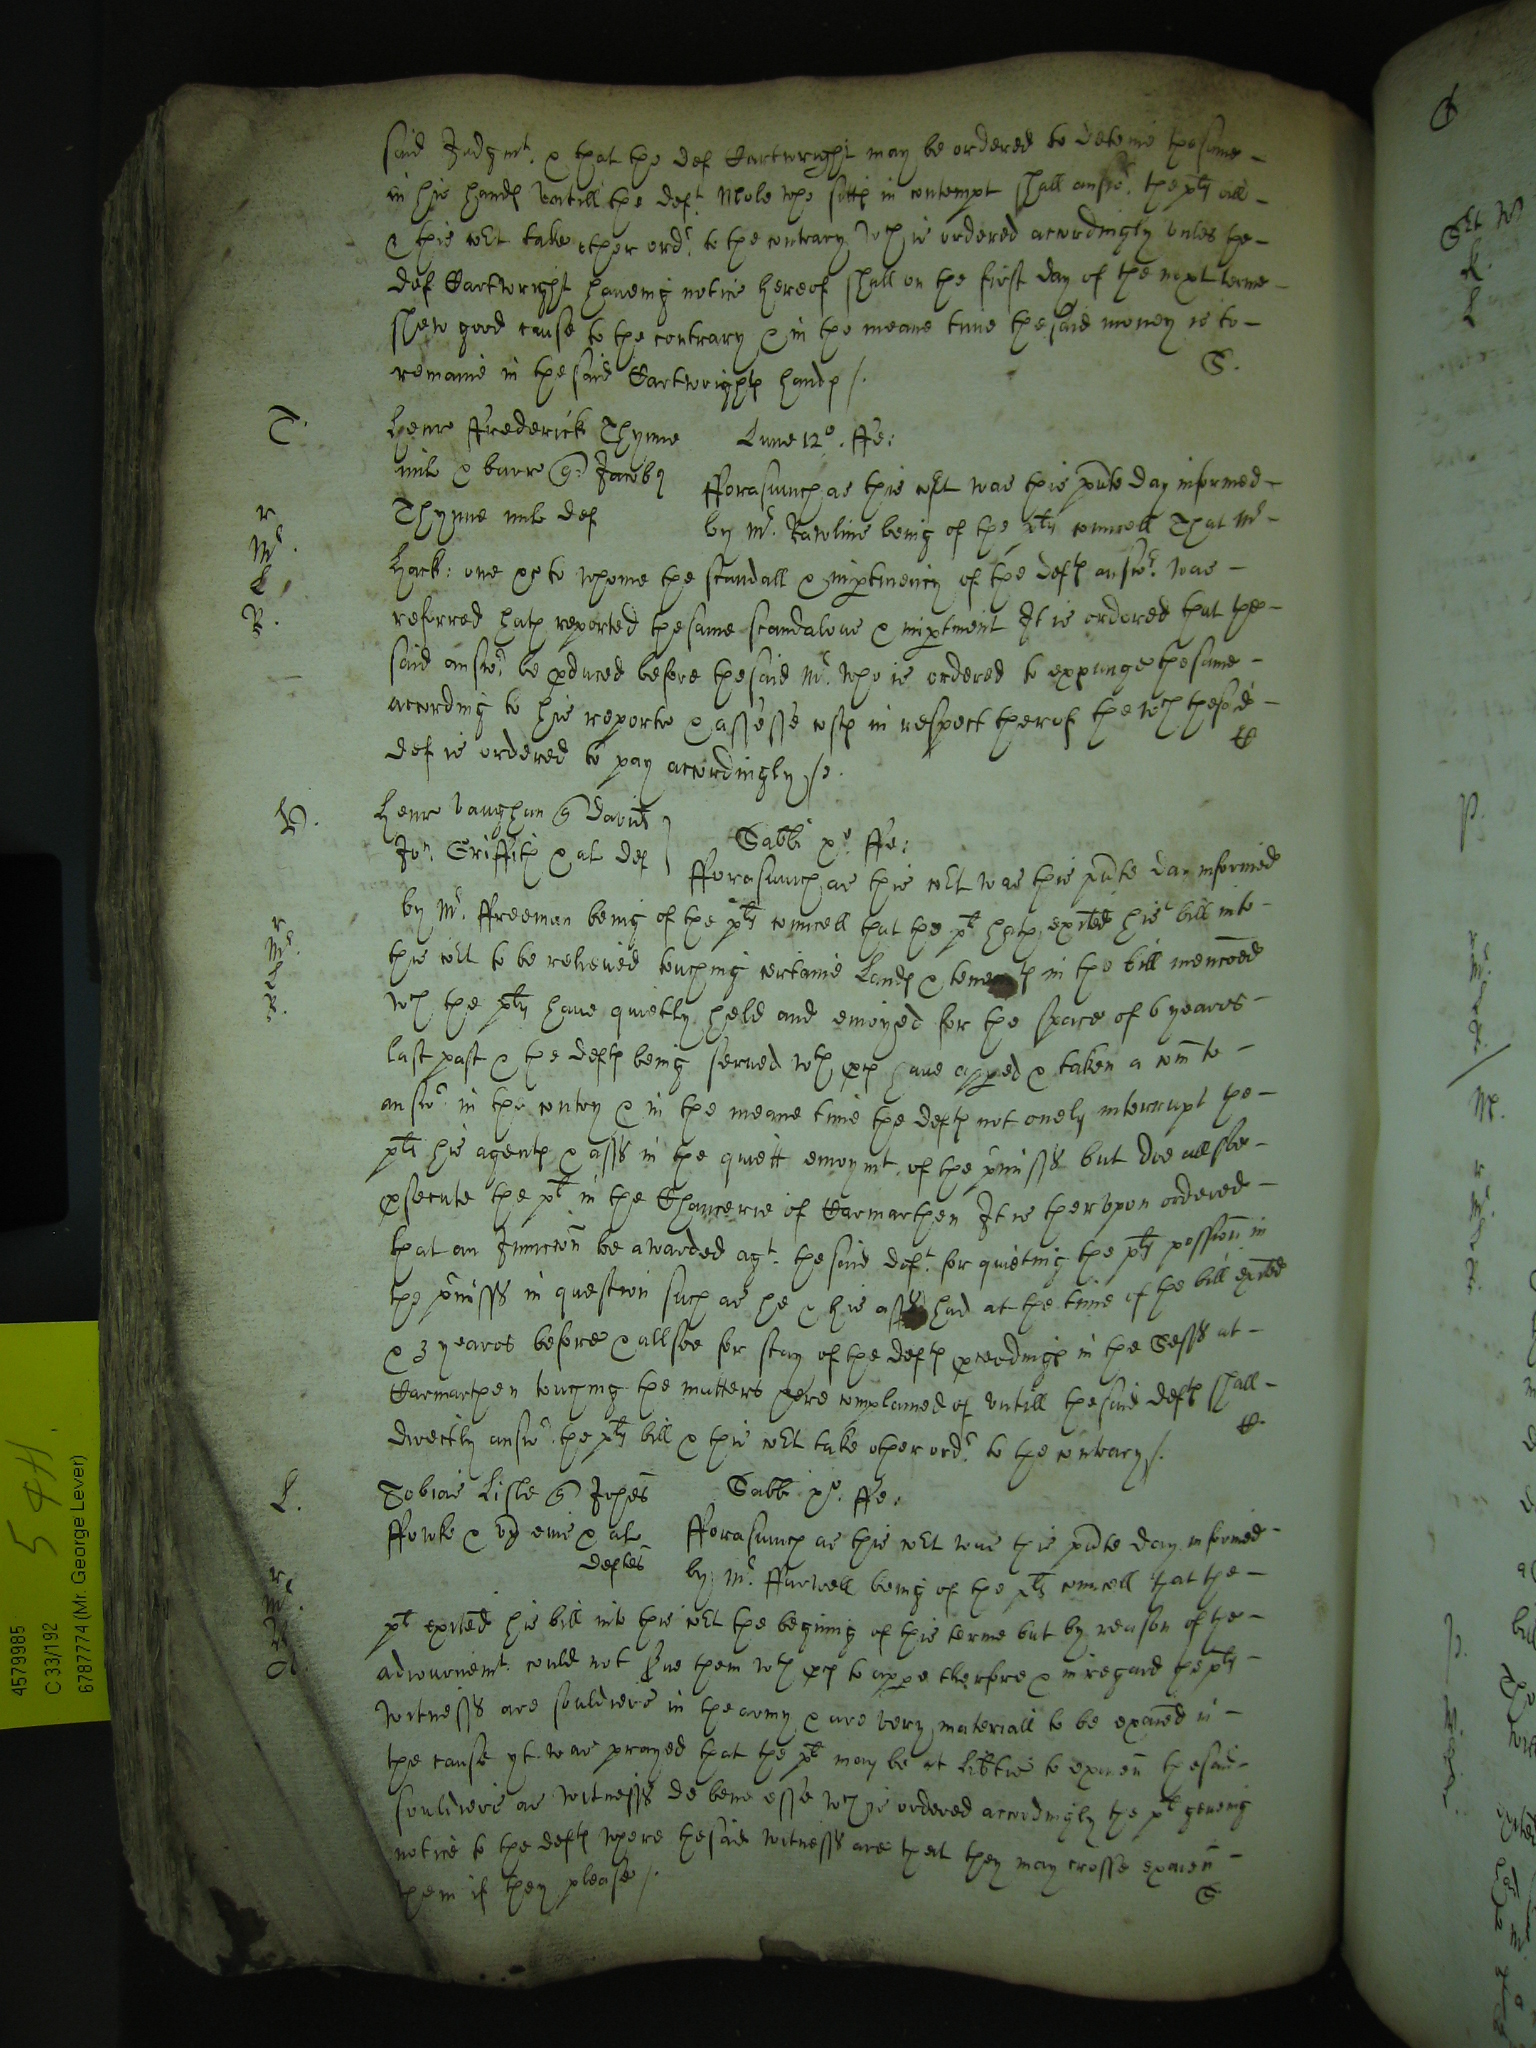 said Judgmt. & that the def Cartwright may be ordered to deteine the same
in his hands untill the deft. Mole who sitts in contempt shall answr. the plts bill
& this cort take other ordr. to the contrary wch is ordered accordingly unles the
def Cartwright haveing notice hereof shall on the first day of the next terme
shew good cause to the contrary & in the meane time the said money is to
remaine in the said Cartwrights hands /.
S.
T.
Henr Frederick Thynne
mil & barr q: Jacob
Thynne mil def
Lune 12o. ffe:
fforasmuch as this cort was this pnte day informed
by Mr. Rawlins being of the plts councell That Mr
Hack: one &c to whome the scandall & impertinency of the defts answr. was
referred hath reported the same scandalous & impertinent It is ordered that the
said answr. be pduced before the said Mr. who is ordered to expunge the same
according to his reporte & assesse costs in respect therof the wch the said
def is ordered to pay accordingly /.
r
Mr.
L
R.
V.
Henr Vaughan q David
Jon. Griffith & al def
Sabbi xo. ffe:
fforasmuch as this cort was this pnte day informed
by Mr. ffreeman being of the plts councell that the plt hath exited his bill into
this cort to be releived touching certaine Lands & tenements in the bill menconed
wch the plts have quietly held and enioyed for the space of 6 yeares
last past & the defts being served wth pces have apped & taken a com to
answr. in the contry & in the meane time the defts not onely interrupt the
plt his agents & asss in the quiett enioymt. of the pmisss but doe allsoe
psecute the plt in the Chancerie of Carmarthen It is therupon ordered
that an Iniuncon be awarded agt. the said deft. for quieting the plts possion in
the pmisss in question such as he & his asss had at the time of the bill exited
& 3 yeares before & allsoe for stay of the defts pceedings in the Sesss at
Carmarthen touching the matters here complained of untill the said defts shall
directly answr. the plts bill & this cort take other ordr. to the contrary /.
r
Mr.
L
R.
L.
Tobias Lisle q Johes
ffowke & ux eius & al
deftes
Sabbi xo. ffe:
fforasmuch as this cort was this pnte day informed
by Mr. ffarwell being of the plts councell that the
plt exited his bill into this cort the begining of this terme but by reason of the
adiournemt. could not serve them wth pces to appe therfore & in regard the plts
witnesss are souldiers in the army & are very materiall to be exaied in
the cause yt was prayed that the plt may be at libtie to examen the said
souldiers as witnesss de bene esse wch is ordered accordingly the plt geveing
notice to the defts where the said witnesss are that they may crosse examen
them if they please /.
S
4579985
C 33/192
6787774 (Mr. George Lever)